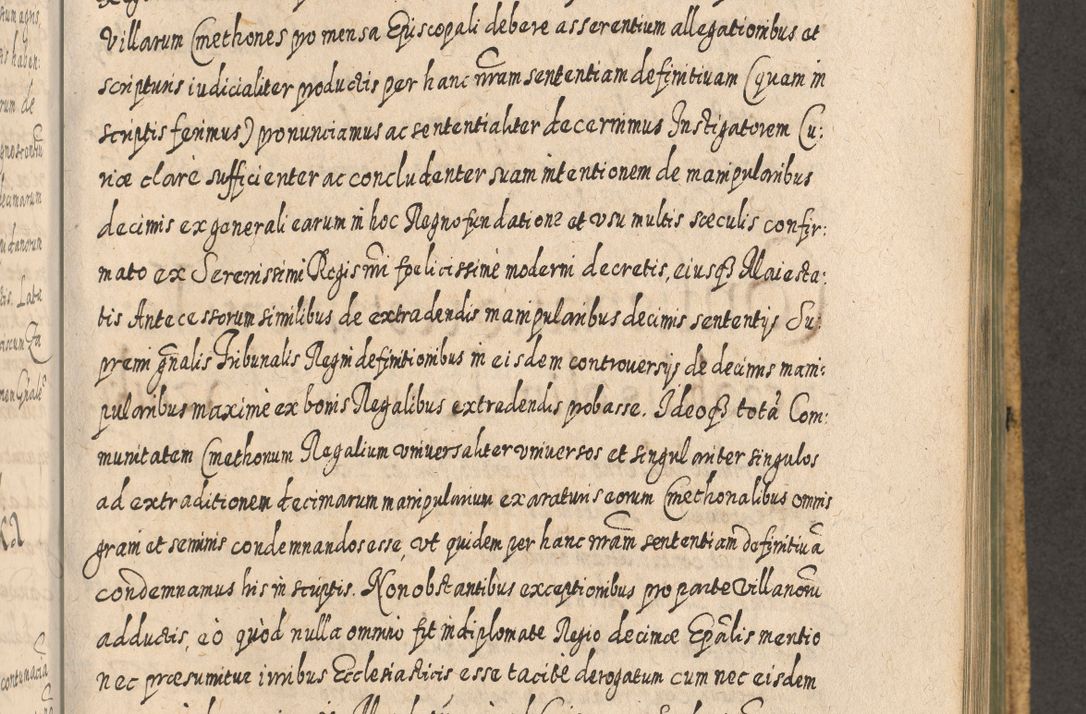 Villarum Cmethones pro mensa Episcopali debere asserentium allegationibus et
scripturis iudicialiter productis per hanc nr̃am sententiam definitiuam (quam in
scriptis ferimus) pronunciamus ac sententialiter decernimus Instigatorem Cu:
riæ clarè sufficienter ac concludenter suam intentionem de manipularibus
decimis ex generali earum in hoc Regno fundatione et vsu multis sæculis confir:
mato ex Serenissimi Regis nr̃i fœlicissimè moderni decretis, eiusqȝ Maiesta:
tis Antecessorum similibus de extradendis manipularibus decimis sententijs Su:
premi gñalis Tribunalis Regni definitionibus in eisdem controuersijs de decimis mani:
pularibus maximè ex bonis Regalibus extradendis probasse. Ideoqȝ totã Com:
munitatem Cmethonum Regalium vniuersaliter vniuersos et singulariter singulos
ad extraditionem decimarum manipularium ex araturis eorum Cmethonalibus omnis
grani et seminis condemnandos esse, vt quidem per hanc nr̃am sententiam definitiuã
condemnamus his in scriptis. Non obstantibus exceptionibus pro parte Villanorũ
adductis, eò quòd nulla omnino fit in diplomate Regio decimæ Epãlis mentio
nec præsumitur iuribus Ecclesiasticis esse tacitè derogatum cum nec eisdem